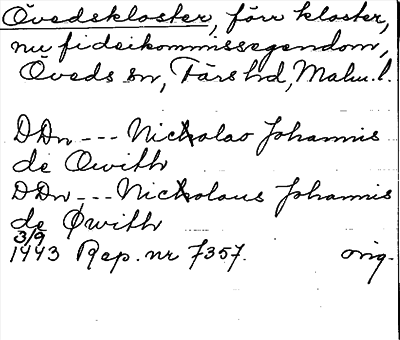 Övedskloster, förr kloster,
nu fideikommissegendom,
Öveds sn, Färs hd, Malm. l.
DDn --- Nicholao Johannis
de Øwith
DDn --- Nicholaus Johannis
de Øwith
3/9
1443 Rep. nr 7357. orig.